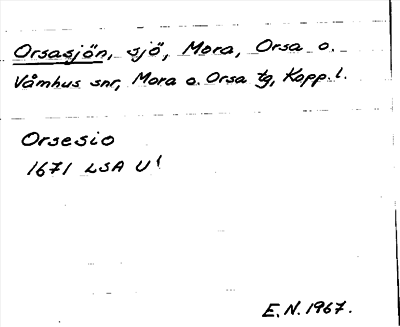 Orsasjön, sjö, Mora, Orsa o.
Våmhus snr, Mora o. Orsa tg, Kopp. l.
Orsesio
1671 LSA U¹
E.N. 1967.